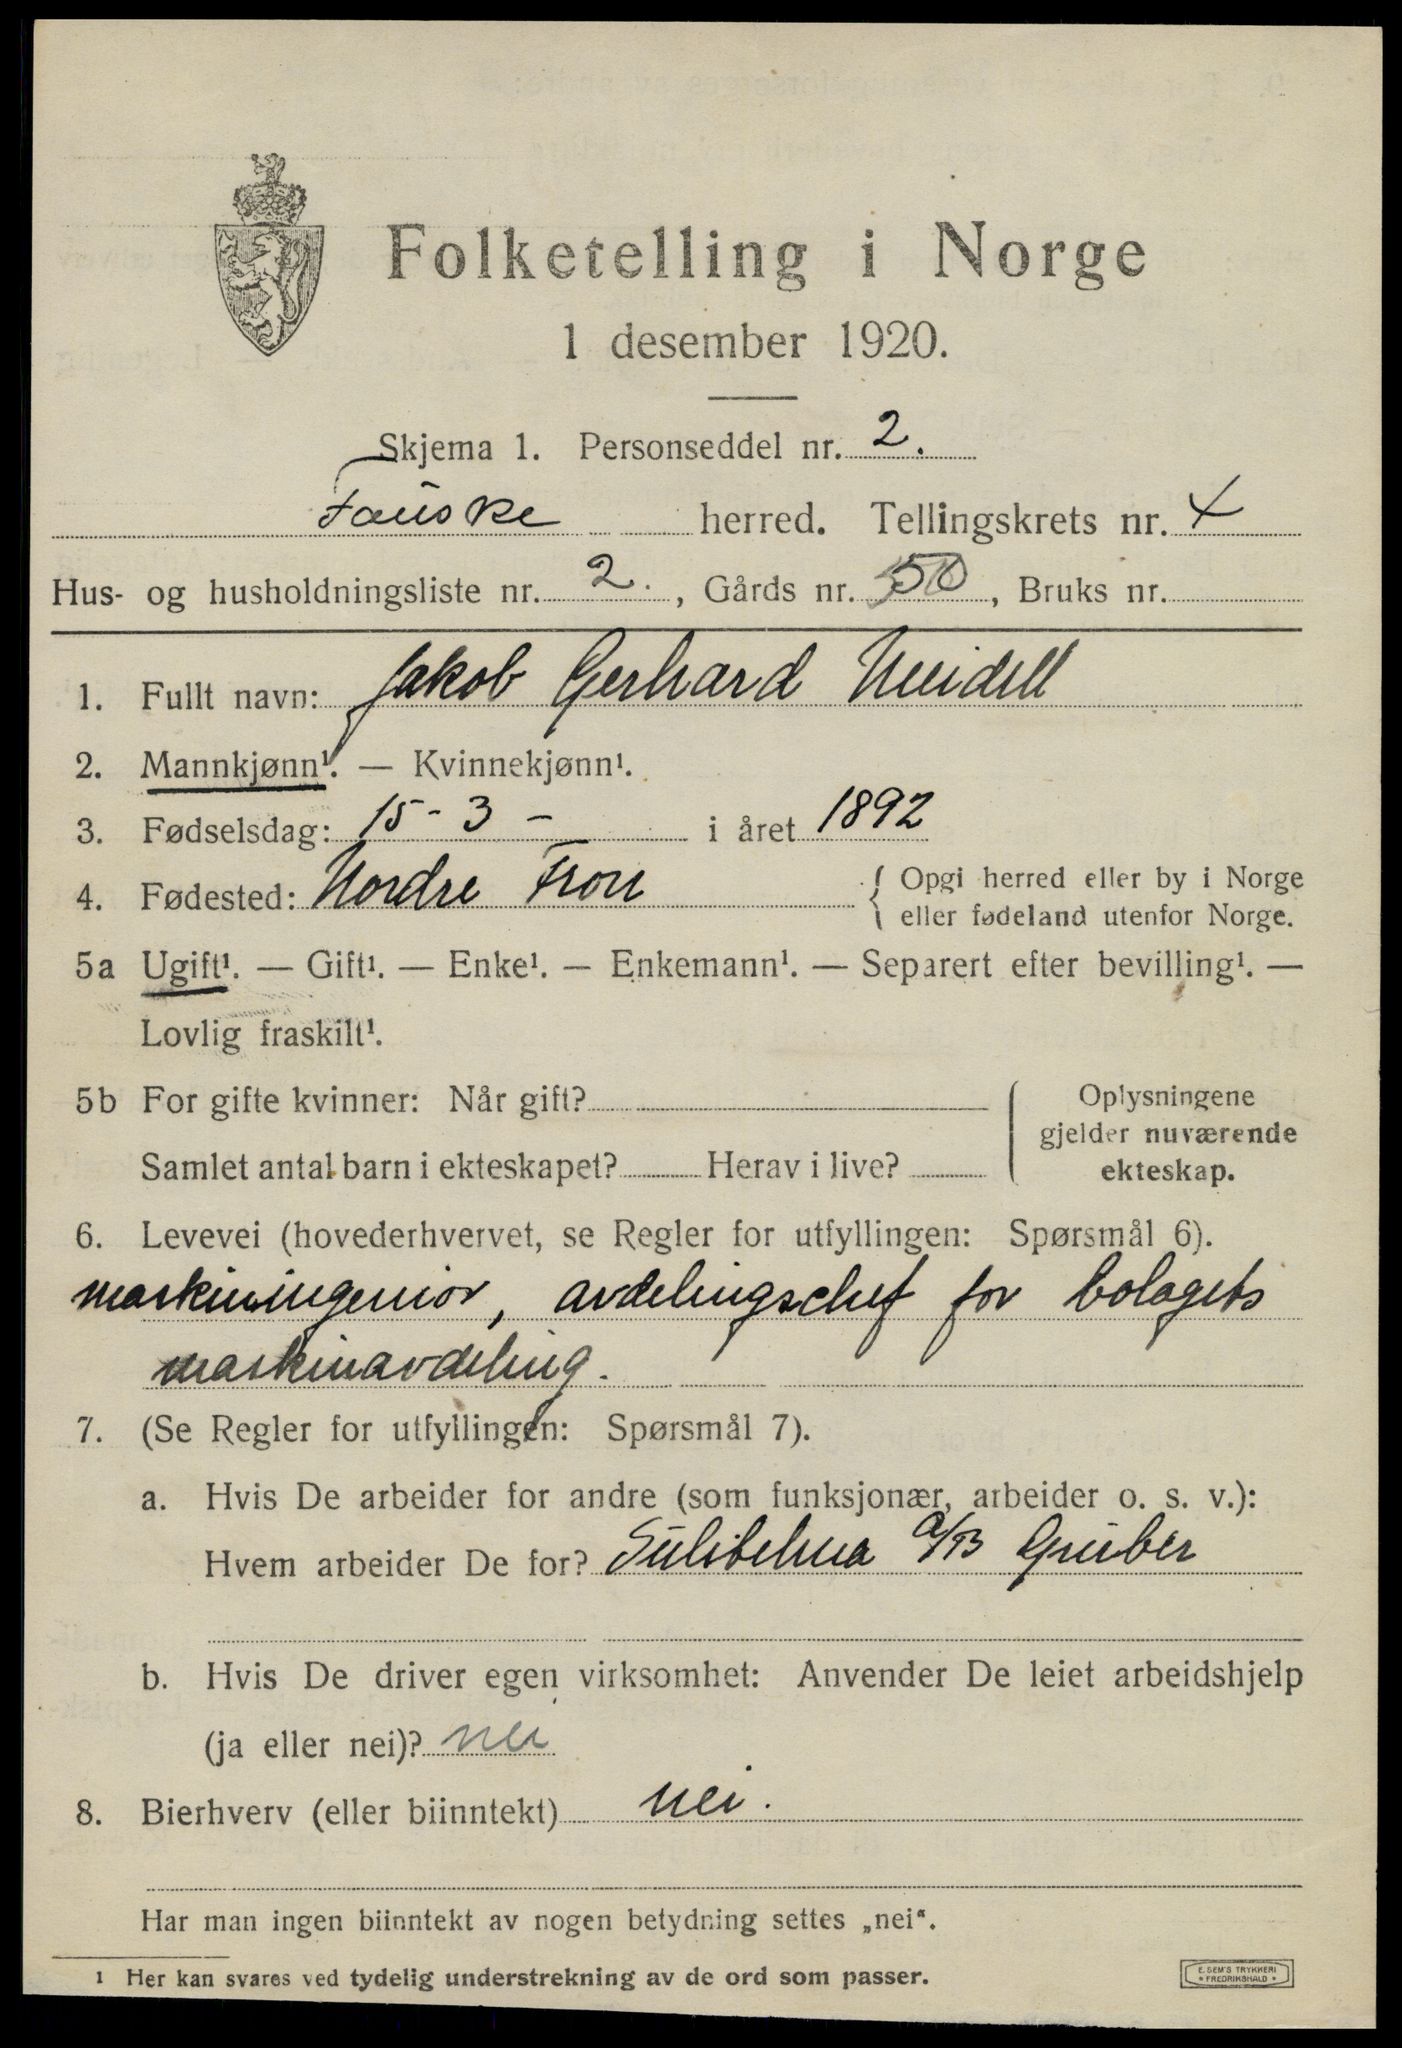 Folketelling i Norge
1 desember 1920.
Skjema 1. Personseddel nr. 2.
Fauske herred. Tellingskrets nr. 4
Hus- og husholdningsliste nr. 2., Gårds nr. 50, Bruks nr.
1. Fullt navn: Jakob Gerhard Meidell
2. Mannkjønn¹. — Kvinnekjønn¹.
3. Fødselsdag: 15 - 3 - i året 1892
4. Fødested: Nordre Fron { Opgi herred eller by i Norge
eller fødeland utenfor Norge.
5a Ugift¹. — Gift¹. — Enke¹. — Enkemann¹. — Separert efter bevilling¹. —
Lovlig fraskilt¹.
5b For gifte kvinner: Når gift? Oplysningene
gjelder nuværende
Samlet antal barn i ekteskapet? Herav i live? ekteskap.
6. Levevei (hovederhvervet, se Regler for utfyllingen: Spørsmål 6).
maskiningeniør, avdelingschef for bolagets
maskinavdeling.
7. (Se Regler for utfyllingen: Spørsmål 7).
a. Hvis De arbeider for andre (som funksjonær, arbeider o. s. v.):
Hvem arbeider De for? Sulitelma A/B Gruber
b. Hvis De driver egen virksomhet: Anvender De leiet arbeidshjelp
(ja eller nei)? nei
8. Bierhverv (eller biinntekt) nei.
Har man ingen biinntekt av nogen betydning settes „nei“.
1 Her kan svares ved tydelig understrekning av de ord som passer.
E. SEM'S TRYKKERI
* FREDRIKSHALD *